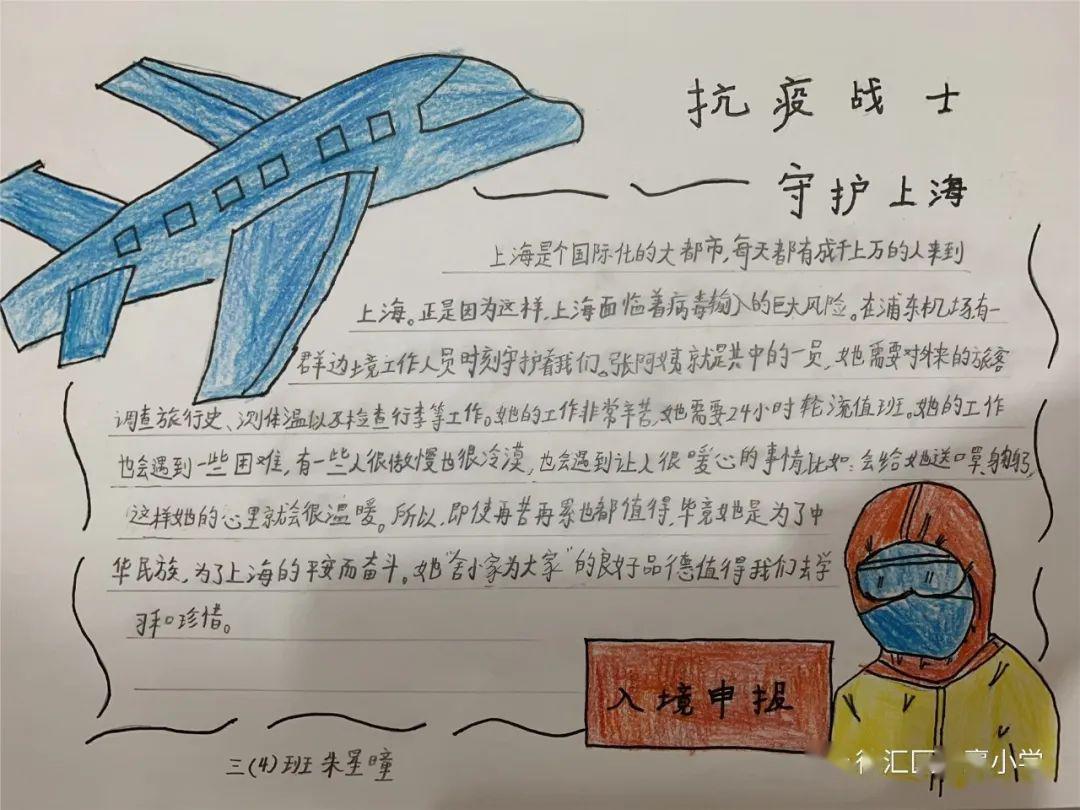 抗疫战士
守护上海
上海是个国际化的大都市,每天都有成千上万的人来到
上海。正是因为这样,上海面临着病毒输入的巨大风险。在浦东机场有一
群边境工作人员时刻守护着我们。张阿姨就是其中的一员,她需要对外来的旅客
调查旅行史、测体温以及检查行李等工作。她的工作非常辛苦,她需要24小时轮流值班。她的工作
也会遇到一些困难,有一些人很傲慢也很冷漠,也会遇到让人很暖心的事情,比如:会给她送口罩、
这样她的心里就会很温暖。所以,即使再苦再累也都值得,毕竟她是为了中
华民族,为了上海的平安而奋斗。她“舍小家为大家”的良好品德值得我们去学
习和珍惜。
入境申报
三(4)班 朱星曈
徐汇区 高小学